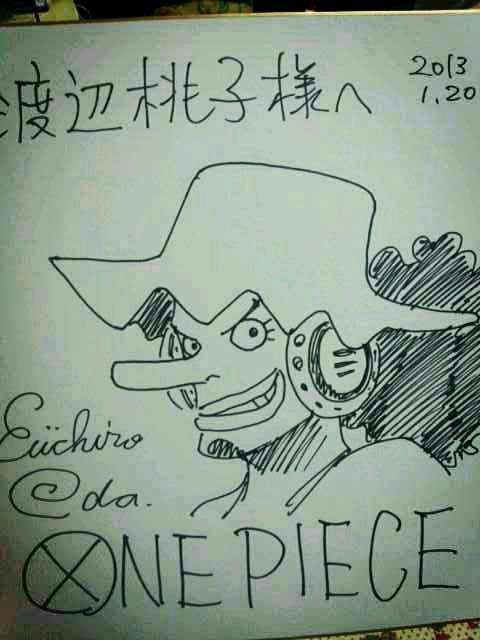 渡辺桃子様へ
2013
1.20
Eiichiro
Oda.
ONE PIECE